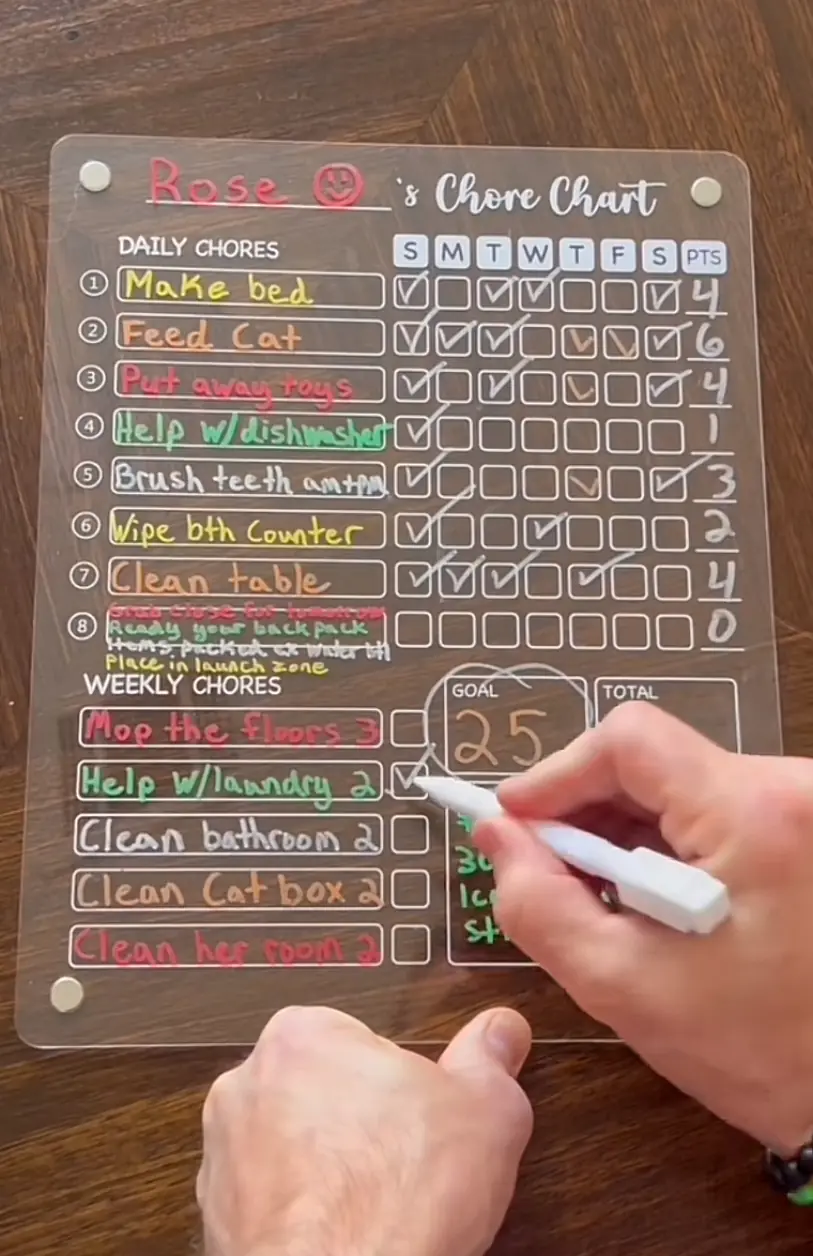 Rose 's Chore Chart
DAILY CHORES S M T W T F S PTS
1 Make bed 4
2 Feed Cat 6
3 Put away toys 4
4 Help w/dishwasher 1
5 Brush teeth am+pm 3
6 Wipe bth Counter 2
7 Clean table 4
Grab close for tomorrow
8 Ready your back pack 0
Items packed ex water btl
Place in launch zone
WEEKLY CHORES GOAL TOTAL
Mop the floors 3 25
Help w/laundry 2
Clean bathroom 2
Clean Cat box 2
Clean her room 2